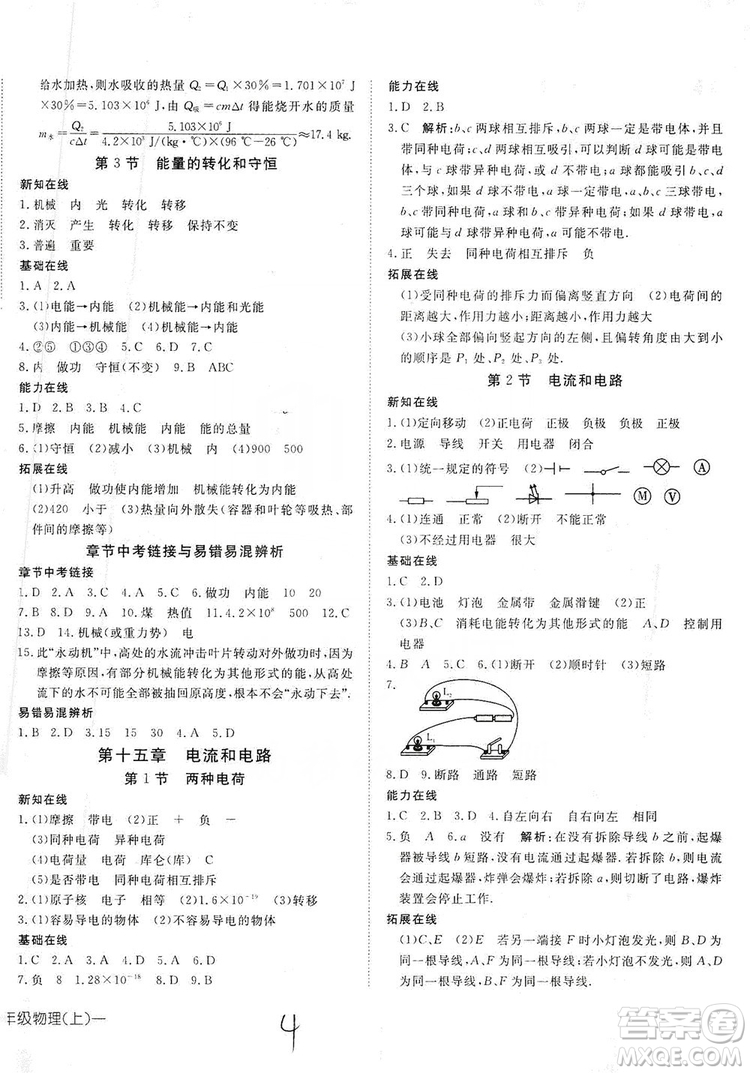 给水加热,则水吸收的热量 Q₂=Q₁×30%=1.701×10⁷ J×
30%=5.103×10⁶ J,由 Q=cmΔt 得能烧开水的质量
m水=Q₂/cΔt=5.103×10⁶ J/4.2×10³ J/(kg·℃)×(96 ℃-23 ℃)≈17.4 kg.
第 3 节 能量的转化和守恒
新知在线
1.机械 内 光 转化 转移
2.消灭 产生 转化 转移 保持不变
3.普遍 重要
基础在线
1.A 2.A
3.(1)电能→内能 (2)机械能→内能和光能
(3)内能→机械能
4.②⑤ ①③④ 5.C 6.C 7.D
8.内 做功 守恒(不变) 9.B ABC
能力在线
1.D 2.B 3.B 4.C
5.摩擦 内能 机械能 内能 能的总量
6.(1)守恒 (2)减小 (3)机械 内 (4)900 500
拓展在线
(1)升高 做功使内能增加 机械能转化为内能
(2)420 小于 (3)热量向外散失(容器和叶轮等吸热、部
件间的摩擦等)
章节中考链接与易错易混辨析
章节中考链接
1.D 2.D 3.C 4.A 5.D 6.C
7.B 8.D 9.D 10.煤 热值 11.4.2×10⁸ 500 12.B
13.D 14.机械(或重力势) 电
15.此“永动机”中,高处的水流冲击叶片转动对外做功时,因
为摩擦等原因,一部分能量转化为其他形式的能,从高处
流下的水不可能全部被抽回原高度,不可能“永动下去”.
易错易混辨析
1.B 2.D 3.15 15 30 4.A 5.D
第十五章 电流和电路
第 1 节 两种电荷
新知在线
1.(1)摩擦 带电 (2)正 + 负 -
(3)同种电荷 异种电荷
(4)电荷量 电荷 库仑(库) C
(5)是否带电 同种电荷相互排斥
2.(1)原子核 电子 相等 (2)1.6×10⁻¹⁹
3.(1)容易导电的物体 (2)不容易导电的物体
基础在线
1.D 2.D 3.A 4.C 5.D 6.C
7.负 8 1.28×10⁻¹⁸ 8.D 9.B
年级物理(上)—
4
能力在线
1.D 2.B
3.C 解析:b、c 两球相互排斥,b、c 两球一定是带电体,并且
带同种电荷.a、b 两球相互吸引,可以判断出 a 球一定不
与 b 球带同种电荷,c、d 两球相互吸引,对于 b、c、d
三个球,如果 d 球不带电,b、c 球一定带同种电荷;如果
d 球带异种电荷,b、c 球一定带同种电荷.a 球可能不带
电,也可能与 d 球带同种电荷或异种电荷(如果 d 球带
电),或者与 b 球带异种电荷(如果 d 球不带电).
4.正 失去 同种电荷相互排斥 负
拓展在线
(1)受同种电荷的排斥力而偏离竖直方向 (2)电荷间的
距离越大,作用力越小;电荷间的距离越小,作用力越大
(3)小球全部偏向竖起方向的右方,且偏转角度由大到小
的顺序是 P₁ 处、P₂处、P₃处.
第 2 节 电流和电路
新知在线
1.(1)定向移动 (2)正电荷 正极 负极 负极 正极
2.电源 导线 开关 用电器 闭合
3.(1)统一规定的符号 (2)
A
M V
4.(1)连通 正常 (2)断开 不能正常
(3)不经过用电器 断开
基础在线
1.C 2.D
3.(1)电池 灯泡 金属带 金属滑键 (2)断开
(3)C 消耗电能转化为其他形式的能 D、A 控制用
电器
4.B 5.A 6.(1)断开 顺时针 (3)短路
7. L₂
L₁
8.D 9.断路 通路 短路
能力在线
1.C 2.B 3.D 4.自左向右 自右向左 相同
5.负 A 6.a 没有 解析:在没有拆除导线 a 时,起爆
器被导线 a 短路,没有电流通过起爆器.若拆除导线 b,
起爆器被引爆,炸弹会爆炸.若拆除 a,则断开电路,爆炸
装置会停止工作.
拓展在线
(1)C、E (2)E 若另一端接 F 时小灯泡发光,则 A、F
为同一根导线,B、E 为同一根导线;若小灯泡不发光,则
A、E 为同一根导线,B、F 为同一根导线.
答案圈
MXQE.COM